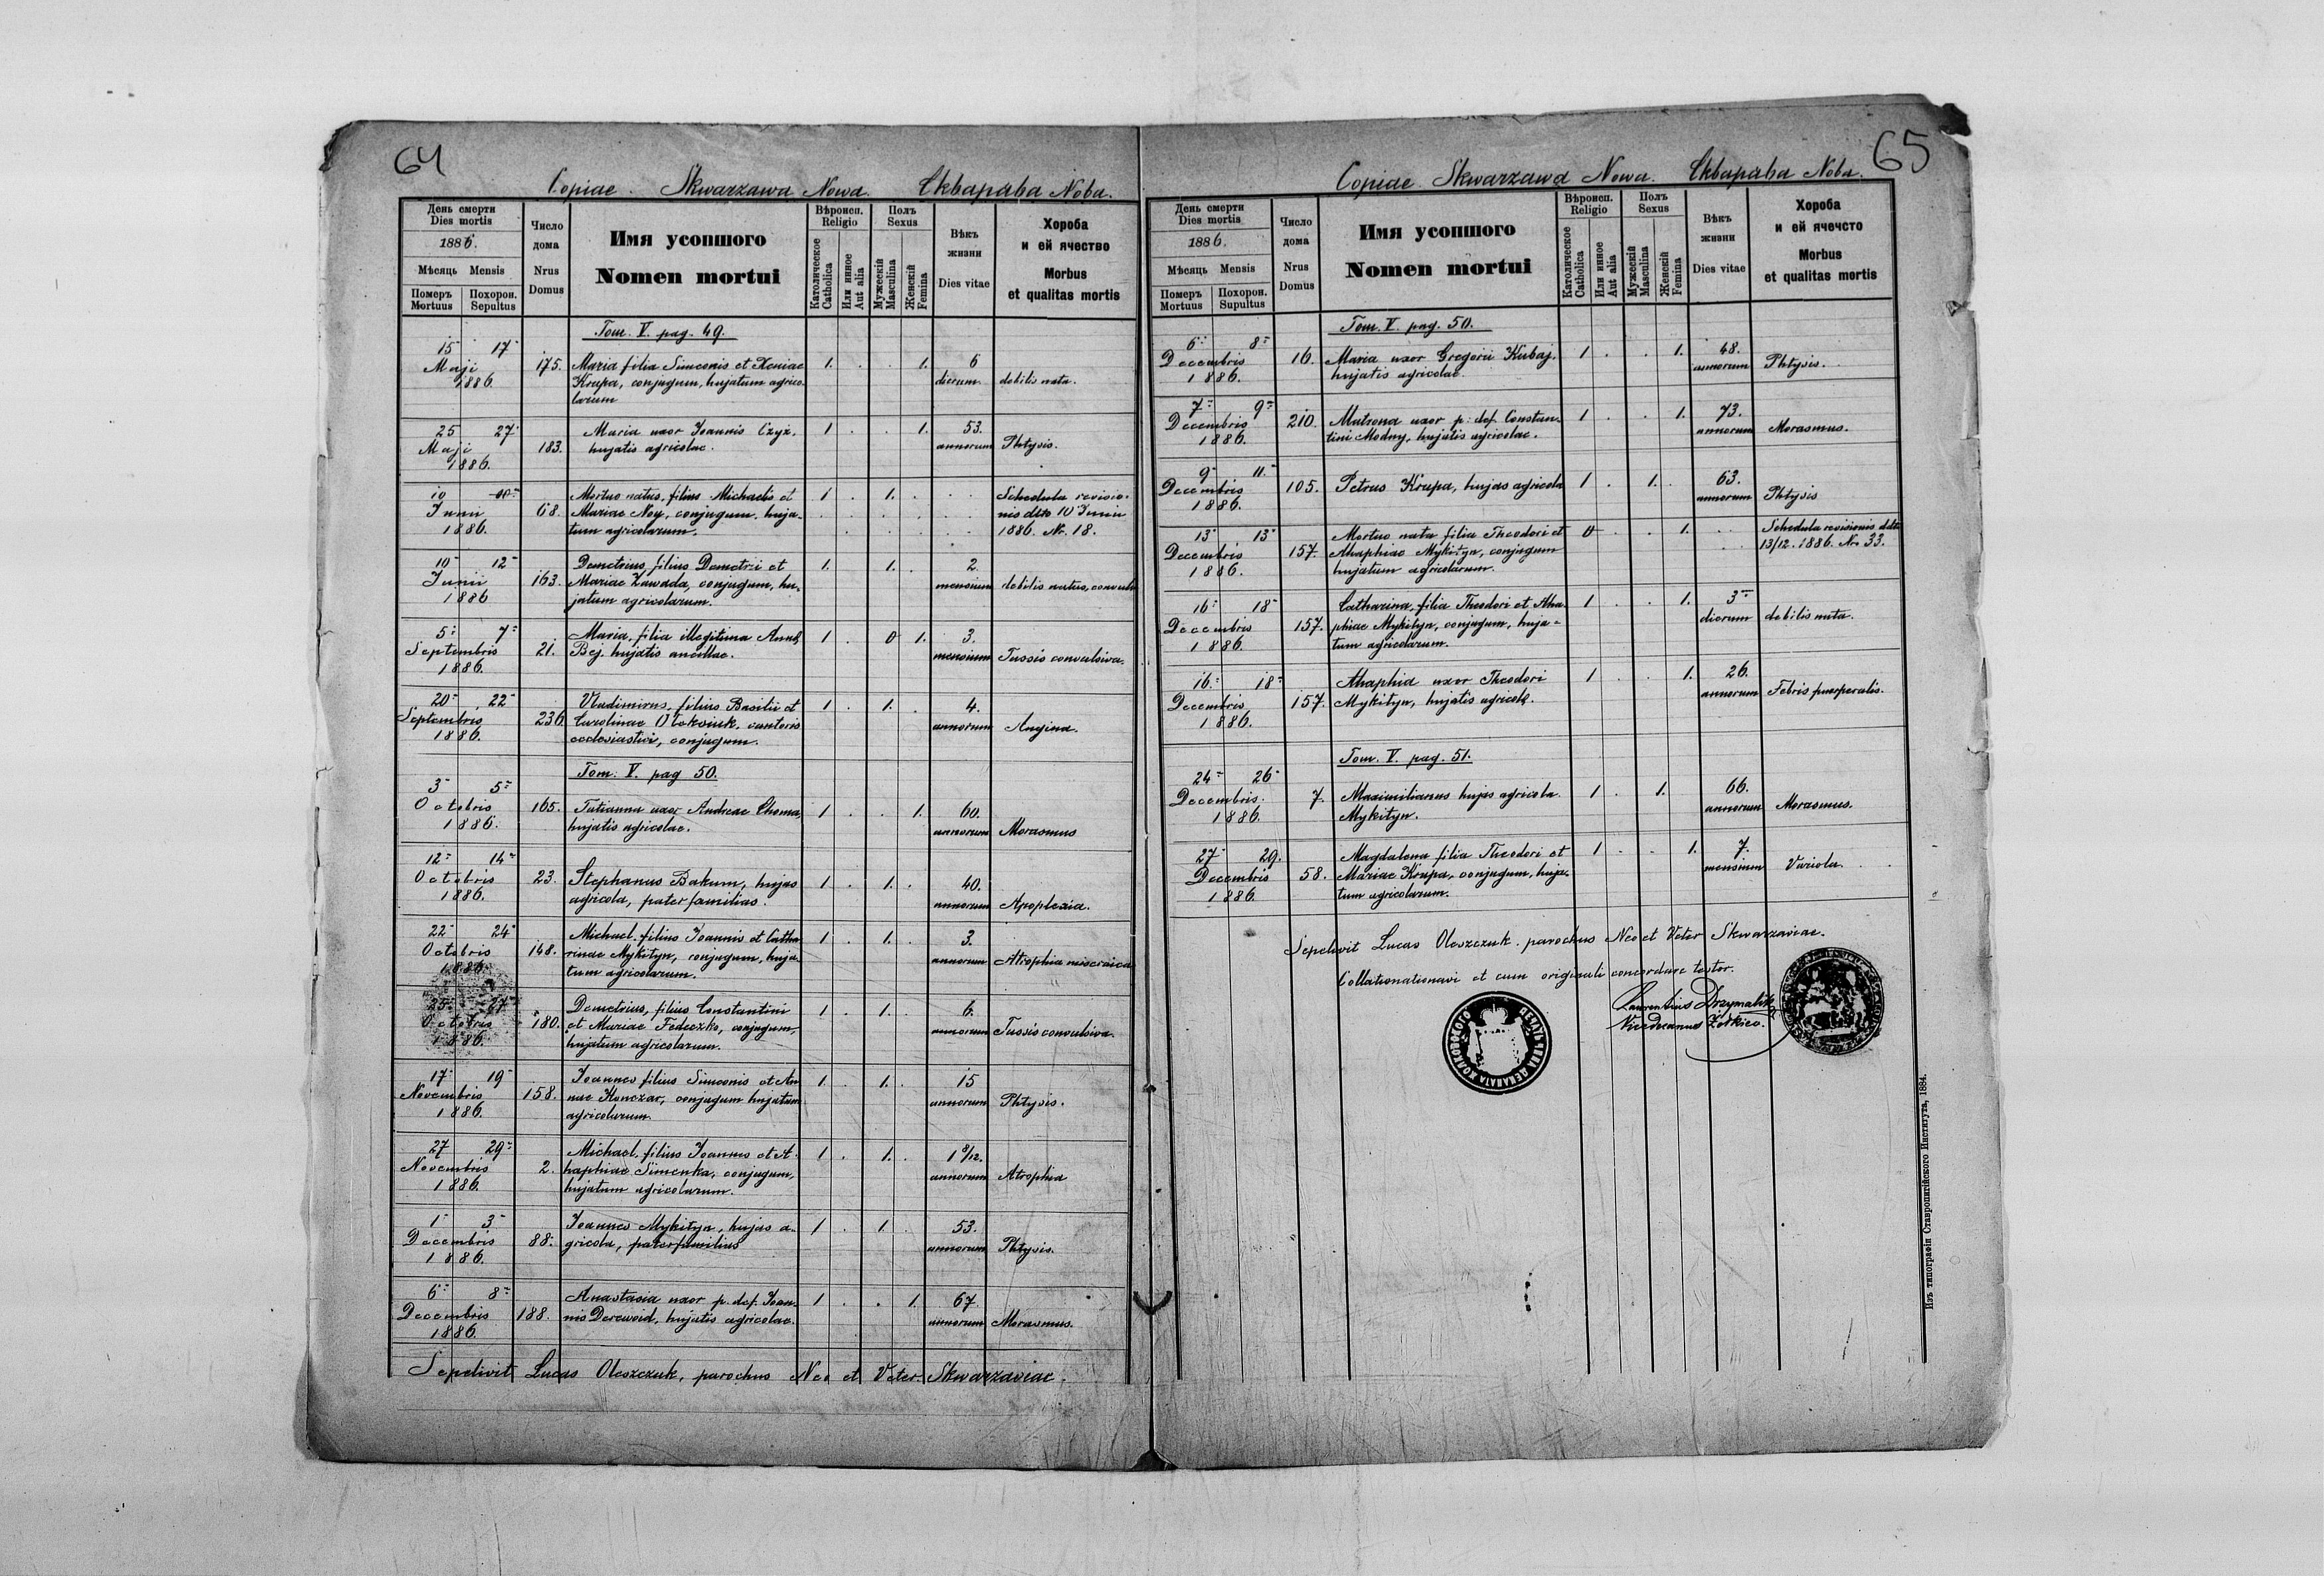 64
Copiae. Skwarzawa Nowa. Скварава Нова.
День смерти
Dies mortis
1886.
Мѣсяць Mensis
Померъ Mortuus
Похорон. Sepultus
Число дома
Nrus Domus
Имя усопшого
Nomen mortui
Вѣроисп. Religio
Католическое Catholica
Или инное Aut alia
Полъ Sexus
Мужескій Masculina
Женскій Femina
Вѣкъ жизни
Dies vitae
Хороба и ей ячество
Morbus et qualitas mortis
Tom. V. pag. 49.
15 17
Maji 175. Maria filia Simeonis et Xeniae 1. . . 1. 6
1886 Krupa, conjugum, hujatum agrico- dierum debilis nata.
larum
25 27 Maria uxor Joannis Czyż, 1 . . 1. 53.
Maji 183. hujatis agricolae. annorum Phtysis.
1886.
10 10 Mortuo natus, filius Michaelis et 1 . 1. . . Schedula revisio-
Junii 68. Mariae Noy, conjugum, huja- nis ddto 10 Junii
1886. tum agricolarum. 1886. Nr. 18.
10 12 Demetrius, filius Demetrii et 1. 1. 2
Junii 163. Mariae Zawada, conjugum, hu- mensium debilis natus, convuls
1886 jatum agricolarum.
5 7 Maria, filia illegitima Annae 1 . 0 1. 3.
Septembris 21. Bej, hujatis ancillae. mensium Tussis convulsiva.
1886.
20 22 Vladimirus, filius Basilii et 1 . 1. . 4.
Septembris 236. Carolinae, cantoris annorum Angina.
1886. ecclesiastici, conjugum.
Tom. V. pag 50.
3 5
Octobris 165. Tatianna uxor Andreae Choma, 1 . . 1. 60.
1886. hujatis agricolae. annorum Marasmus
12 14
Octobris 23. Stephanus Bakum, hujas 1 . 1. . 40.
1886. agricola, paterfamilias. annorum Apoplexia.
22 24 Michael, filius Joannis et Catha- 1 . 1. . 3.
Octobris 148. rinae Mykityn, conjugum, huja- annorum Atrophia
1886. tum agricolarum.
25 27 Demetrius, filius Constantini 1 . 1. . 6.
Octobris 180. et Mariae Fedeczko, conjugum, annorum Tussis convulsiva.
1886. hujatum agricolarum.
17 19 Joannes filius Simeonis et An- 1. . 1. . 15
Novembris 158. nae Konczar, conjugum hujatum annorum Phtysis.
1886. agricolarum.
27 29 Michael, filius Joannis et A- 1 . 1. . 1 8/12.
Novembris 2. haphiae Simenka, conjugum, annorum Atrophia
1886. hujatum agricolarum.
1 3 Joannes Mykityn, hujas a- 1 . 1. . 53.
Decembris 88. gricola, paterfamilias annorum Phtysis.
1886.
6 8 Anastasia uxor p. def. Joan- 1 . . 1. 67
Decembris 188. nis Derewoid, hujatis agricolae. annorum Marasmus.
1886.
Sepelivit Lucas Oleszczuk, parochus Neo et Veter Skwarzaviae.
65
Copiae Skwarzawa Nowa. Скварава Нова.
День смерти
Dies mortis
1886.
Мѣсяць Mensis
Померъ Mortuus
Похорон. Supultus
Число дома
Nrus Domus
Имя усопшого
Nomen mortui
Вѣроисп. Religio
Католическое Catholica
Или инное Aut alia
Полъ Sexus
Мужескій Masculina
Женскій Femina
Вѣкъ жизни
Dies vitae
Хороба и ей ячечсто
Morbus et qualitas mortis
Tom. V. pag. 50.
6 8
Decembris 16. Maria uxor Gregorii Kubaj, 1 . . 1. 48.
1886. hujatis agricolae. annorum Phtysis.
7 9
Decembris 210. Matrona uxor p. def. Constan- 1 . . 1. 73.
1886. tini Modny, hujatis agricolae. annorum Marasmus.
9 11.
Decembris 105. Petrus Krupa, hujas agricola 1 . 1. . 63.
1886. annorum Phtysis
13 13 Mortuo nata filia Theodori et 0 . . 1. . . Schedula revisionis ddto
Decembris 157. Ahaphiae Mykityn, conjugum 13/12. 1886. Nro 33.
1886. hujatum agricolarum.
16 18 Catharina, filia Theodori et Aha- 1 . . 1. 3
Decembris 157. phiae Mykityn, conjugum, huja- dierum debilis nata.
1886. tum agricolarum.
16. 18 Ahaphia uxor Theodori 1 . . 1. 26.
Decembris 157. Mykityn, hujatis agricolae. annorum Febris puerperalis.
1886.
Tom. V. pag. 51.
24 26
Decembris. 7. Maximilianus hujas agricola 1 . 1. 66.
1886. Mykityn. annorum Marasmus.
27 29. Magdalena filia Theodori et 1 . . 1. 7.
Decembris 58. Mariae Krupa, conjugum, huja- mensium Variola.
1886. tum agricolarum.
Sepelivit Lucas Oleszczuk. parochus Neo et Veter Skwarzaviae.
Collationationavi et cum originali concordare testor.
Laurentius Drzymalik
Vicedecanus Żołkiew.
Изъ типографіи Ставропигійского Института, 1884.